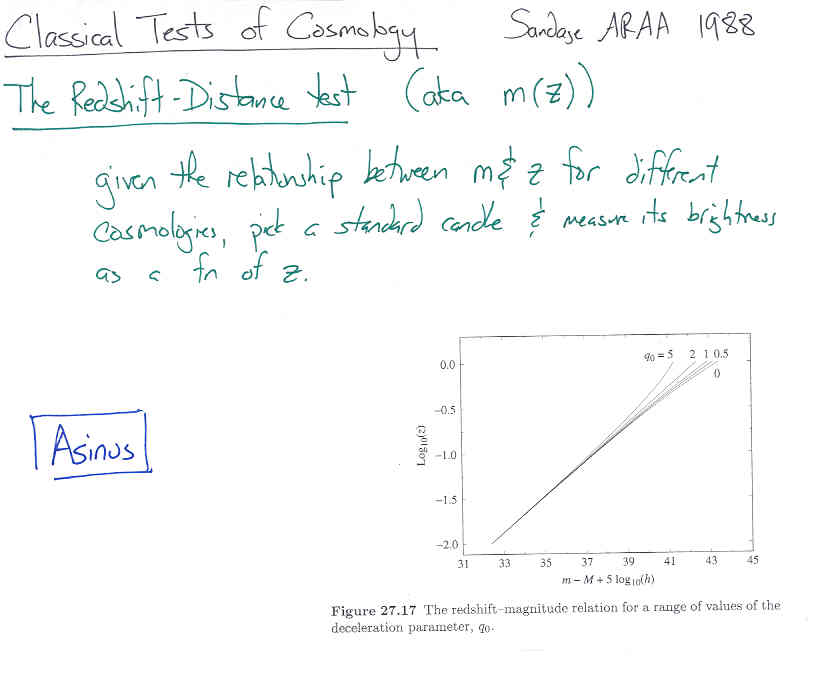 Classical Tests of Cosmology Sandage ARAA 1988
The Redshift-Distance test (aka m(z))
given the relationship between m & z for different
cosmologies, pick a standard candle & measure its brightness
as a fn of z.
Asinus
q0 = 5 2 1 0.5
0
0.0
−0.5
−1.0
−1.5
−2.0
Log10(z)
31 33 35 37 39 41 43 45
m − M + 5 log10(h)
Figure 27.17 The redshift–magnitude relation for a range of values of the
deceleration parameter, q0.